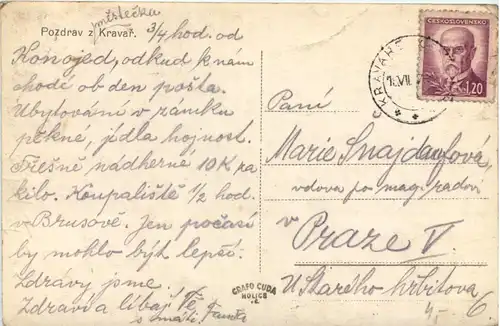 městečka
Pozdrav z Kravař. 3/4 hod. od
Konojed, odkud k nám
chodí ob den pošta.
Ubytování v zámku
pěkné, jídla hojnost.
Třešně nádherné 10 K za
kilo. Koupaliště 1/2 hod.
v Brusově. Jen počasí
by mohlo být lepší.
Zdrávy jsme,
Zdraví a líbají Tě,
s
ČESKOSLOVENSKO
1.20
KRAVAŘE
VII
Paní
Marie Šnajdaufová,
vdova po mag. radovi
v
Praze V.
U Starého hřbitova
6
GRAFO ČUDA
HOLICE